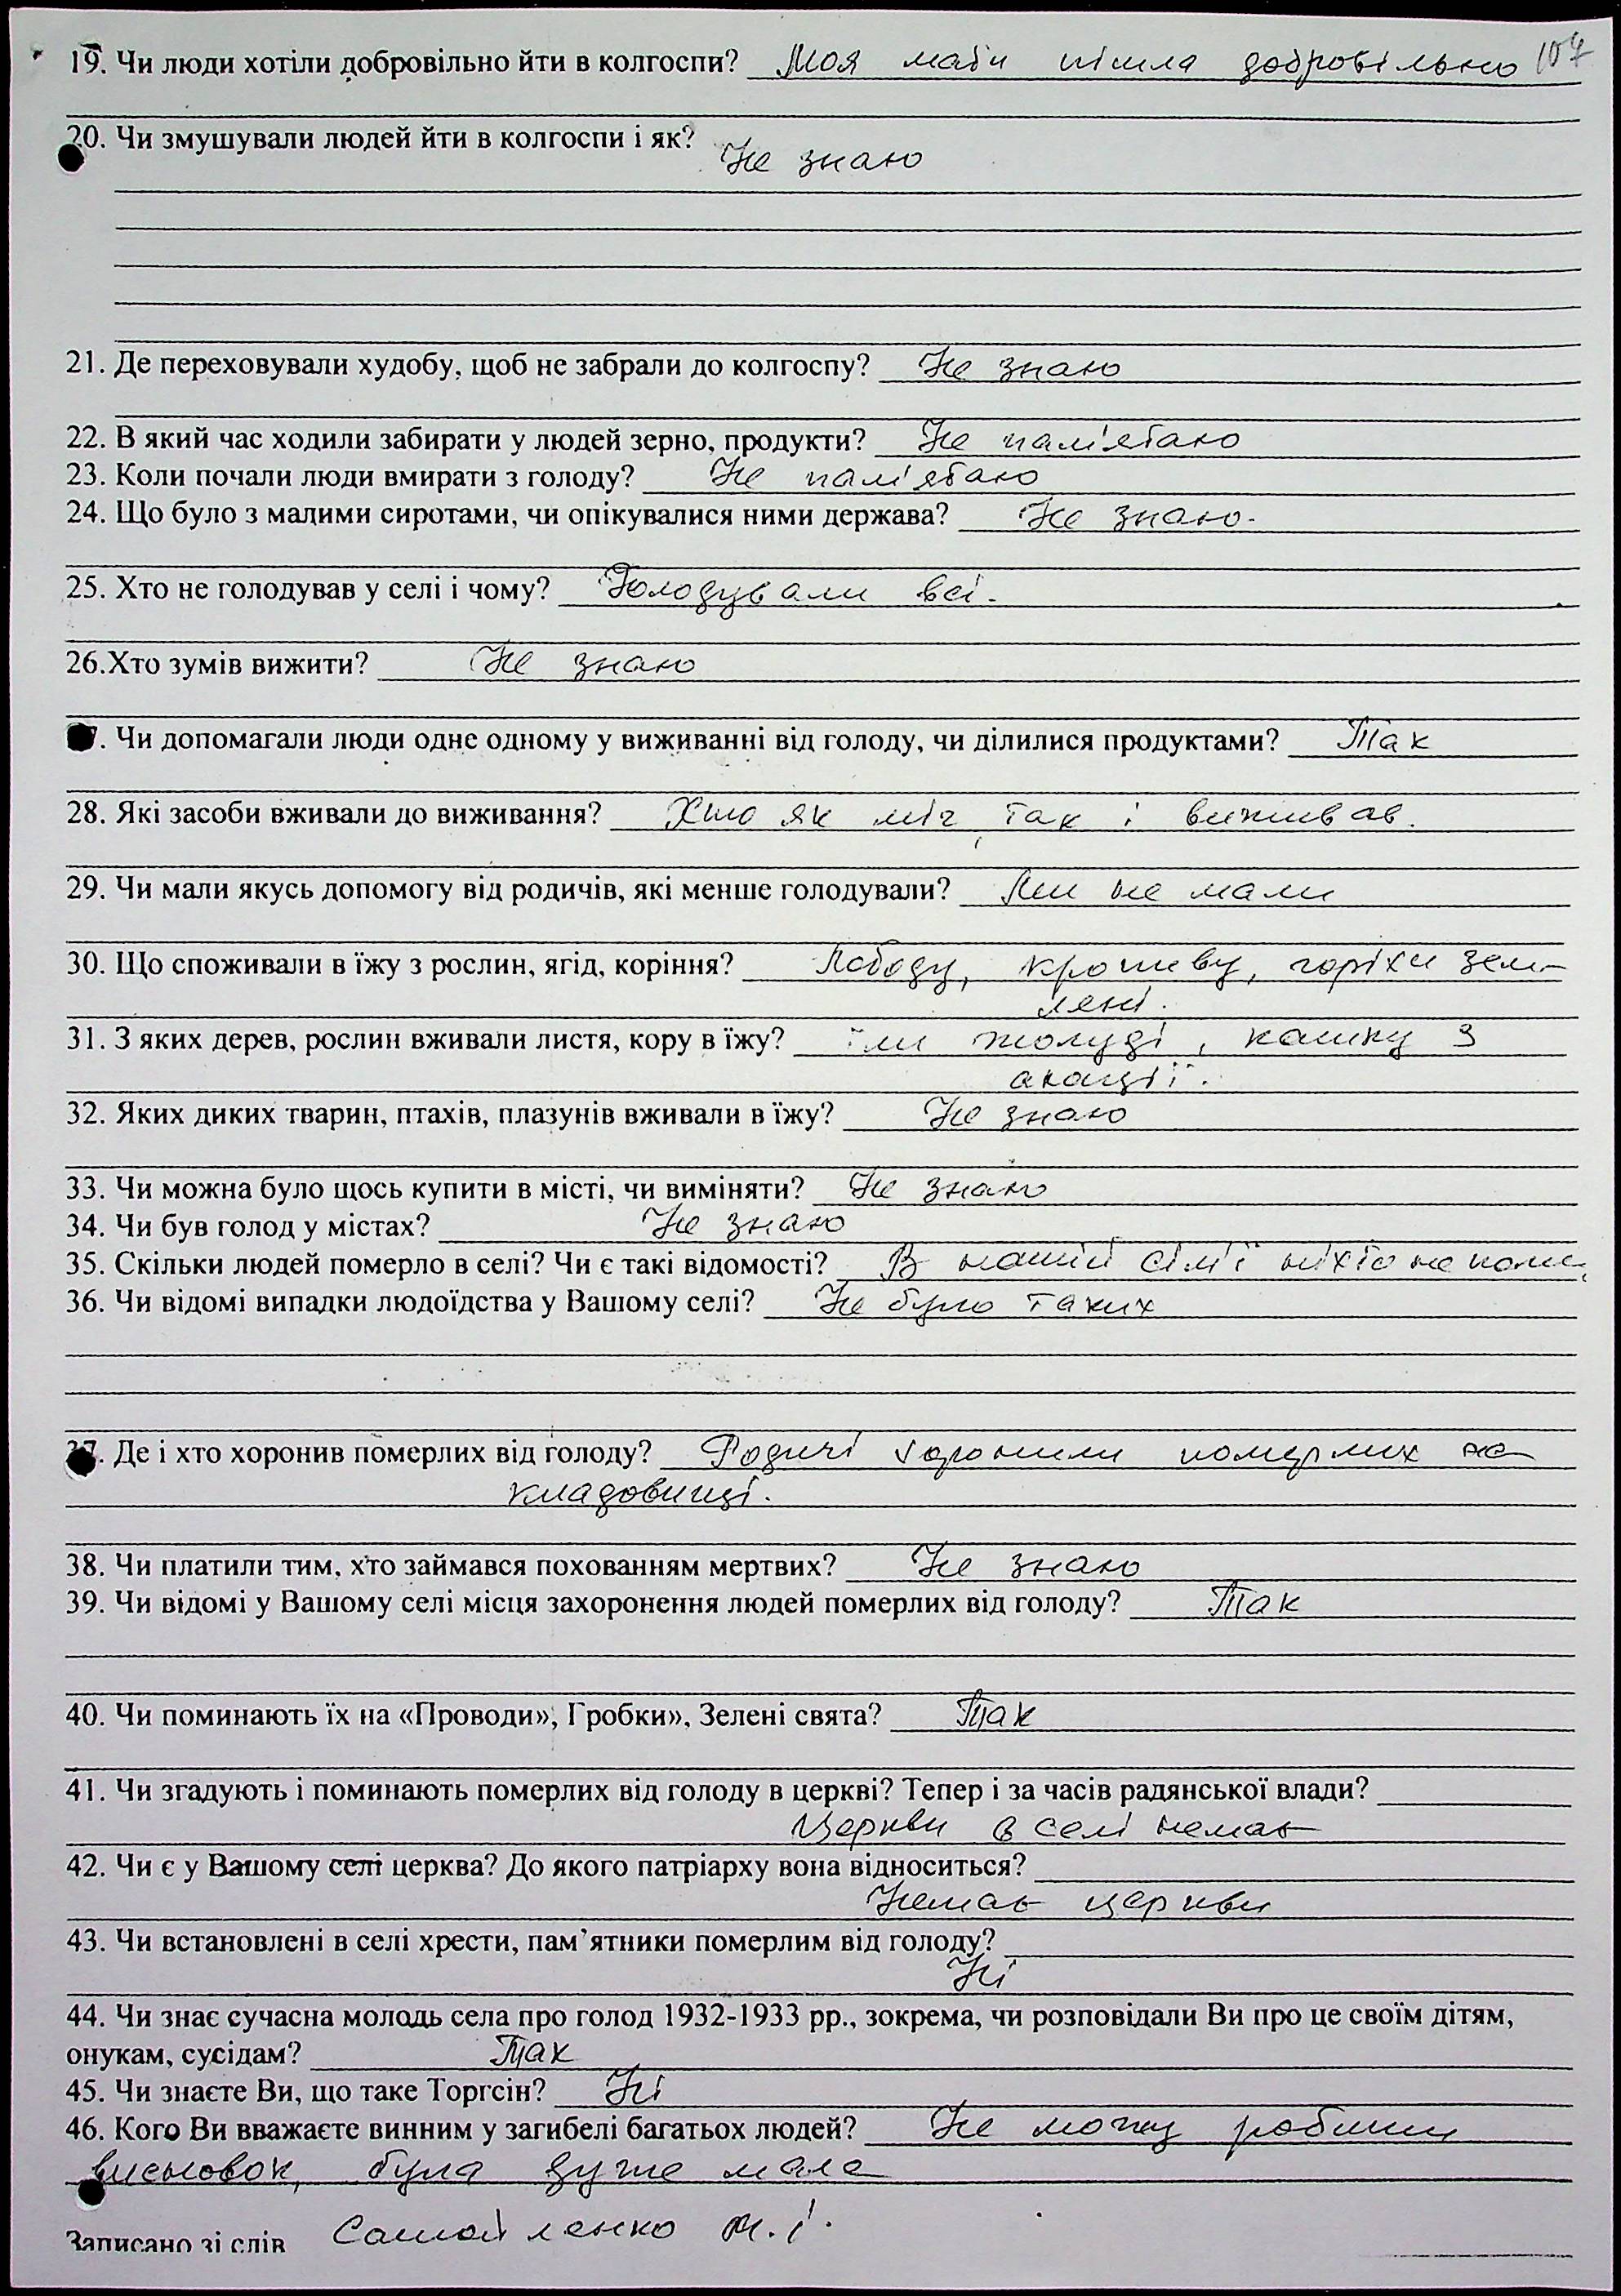 19. Чи люди хотіли добровільно йти в колгоспи? Моя мати пішла добровільно 107
20. Чи змушували людей йти в колгоспи і як? Не знаю
21. Де переховували худобу, щоб не забрали до колгоспу? Не знаю
22. В який час ходили забирати у людей зерно, продукти? Не пам'ятаю
23. Коли почали люди вмирати з голоду? Не пам'ятаю
24. Що було з малими сиротами, чи опікувалися ними держава? Не знаю.
25. Хто не голодував у селі і чому? Голодували всі.
26.Хто зумів вижити? Не знаю
7. Чи допомагали люди одне одному у виживанні від голоду, чи ділилися продуктами? Так
28. Які засоби вживали до виживання? Хто як міг, так і виживав.
29. Чи мали якусь допомогу від родичів, які менше голодували? Ми не мали
30. Що споживали в їжу з рослин, ягід, коріння? Лободу, кропиву, горіхи зем-
ляні.
31. З яких дерев, рослин вживали листя, кору в їжу? їли жолуді, кашку з
акації.
32. Яких диких тварин, птахів, плазунів вживали в їжу? Не знаю
33. Чи можна було щось купити в місті, чи виміняти? Не знаю
34. Чи був голод у містах? Не знаю
35. Скільки людей померло в селі? Чи є такі відомості? В нашій сім'ї ніхто не
36. Чи відомі випадки людоїдства у Вашому селі? Не було таких
37. Де і хто хоронив померлих від голоду? Родичі хоронили померлих на
кладовищі.
38. Чи платили тим, хто займався похованням мертвих? Не знаю
39. Чи відомі у Вашому селі місця захоронення людей померлих від голоду? Так
40. Чи поминають їх на «Проводи», Гробки», Зелені свята? Так
41. Чи згадують і поминають померлих від голоду в церкві? Тепер і за часів радянської влади?
Церкви в селі немає
42. Чи є у Вашому селі церква? До якого патріарху вона відноситься?
Немає церкви
43. Чи встановлені в селі хрести, пам’ятники померлим від голоду?
Ні
44. Чи знає сучасна молодь села про голод 1932-1933 рр., зокрема, чи розповідали Ви про це своїм дітям,
онукам, сусідам? Так
45. Чи знаєте Ви, що таке Торгсін? Ні
46. Кого Ви вважаєте винним у загибелі багатьох людей? Не можу робити
висновок, була дуже мала
Записано зі слів Самойленко М.І.